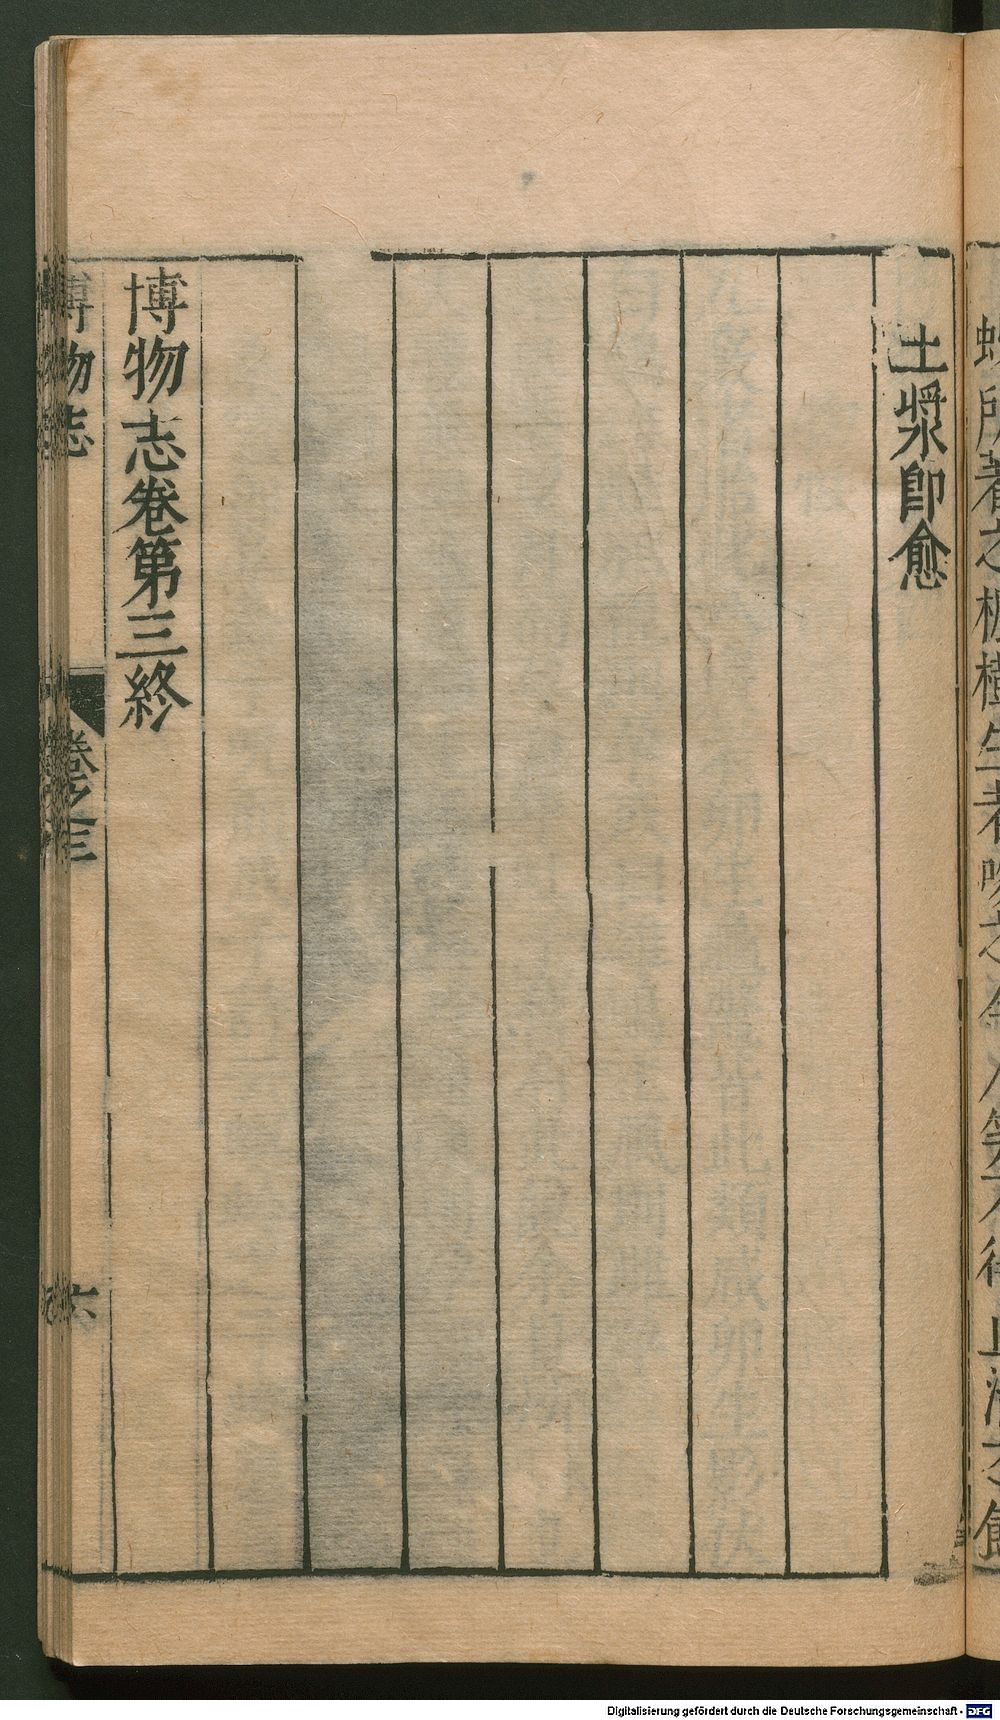 蛇所著之楓樹生者啖之令人笑不得止治之飲
土漿即愈
博物志卷第三終
博物志 卷之三 六
Digitalisierung gefördert durch die Deutsche Forschungsgemeinschaft - DFG